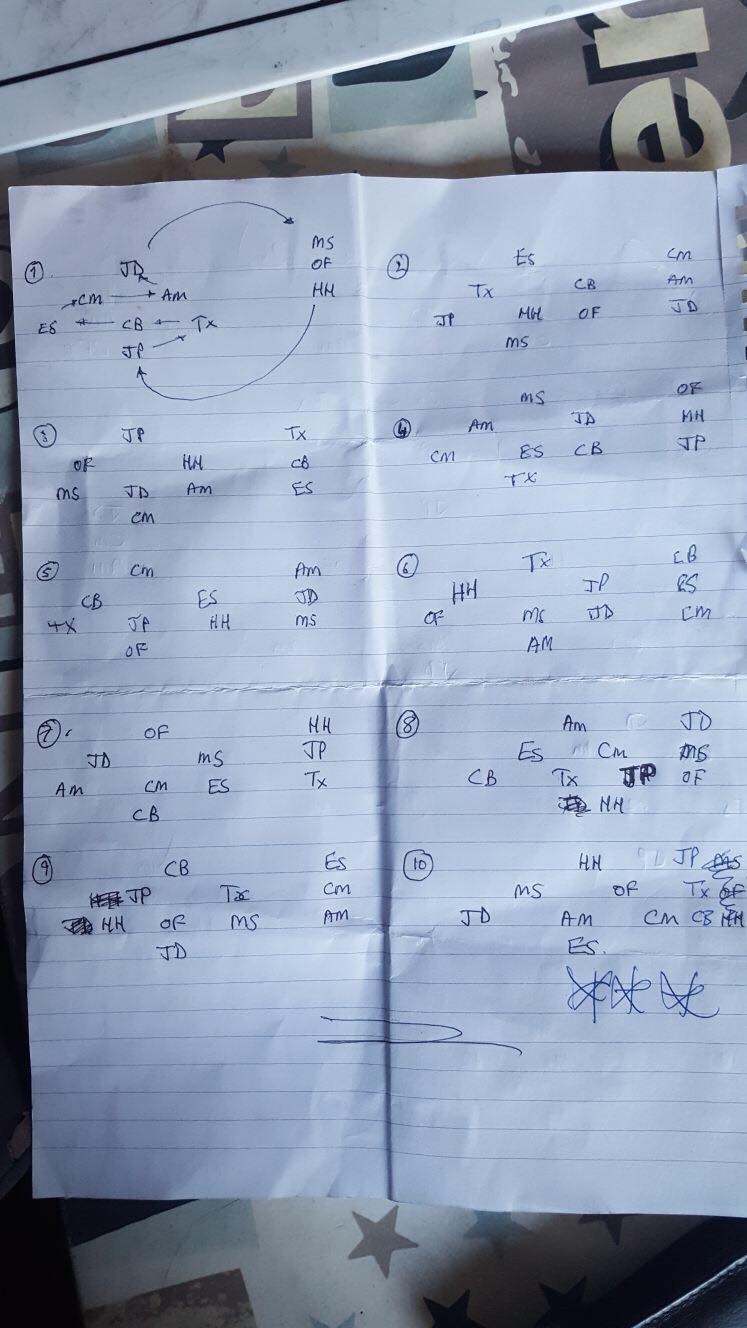 er
① JD MS
OF
CM AM HH
ES CB Tx
JP
② ES CM
Tx CB AM
JP HH OF JD
MS
③ JP Tx
OF HH CB
MS JD AM ES
CM
④ MS OF
AM JD HH
CM ES CB JP
TX
⑤ CM AM
CB ES JD
TX JP HH MS
OF
⑥ Tx CB
HH JP ES
OF MS JD CM
AM
⑦ OF HH
JD MS JP
AM CM ES Tx
CB
⑧ Am JD
ES Cm MS
CB Tx JP OF
HH
⑨ CB ES
JP Tx CM
HH OF MS AM
JD
⑩ HH JP MS
MS OF Tx OF
JD AM CM CB HH
ES.